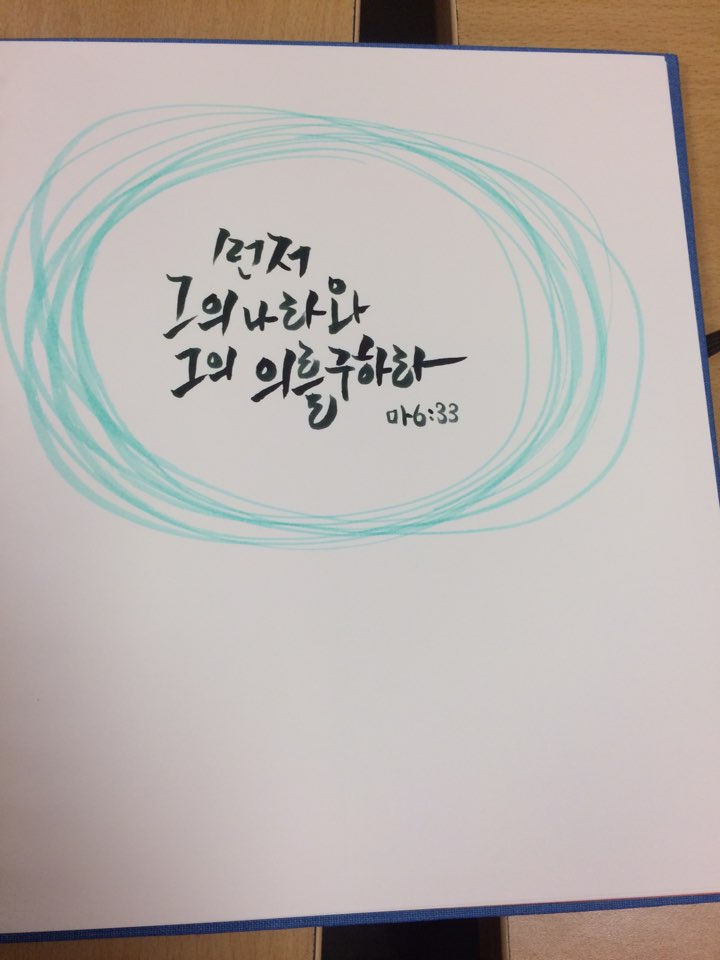 먼저
그의 나라와
그의 의를 구하라
마6:33